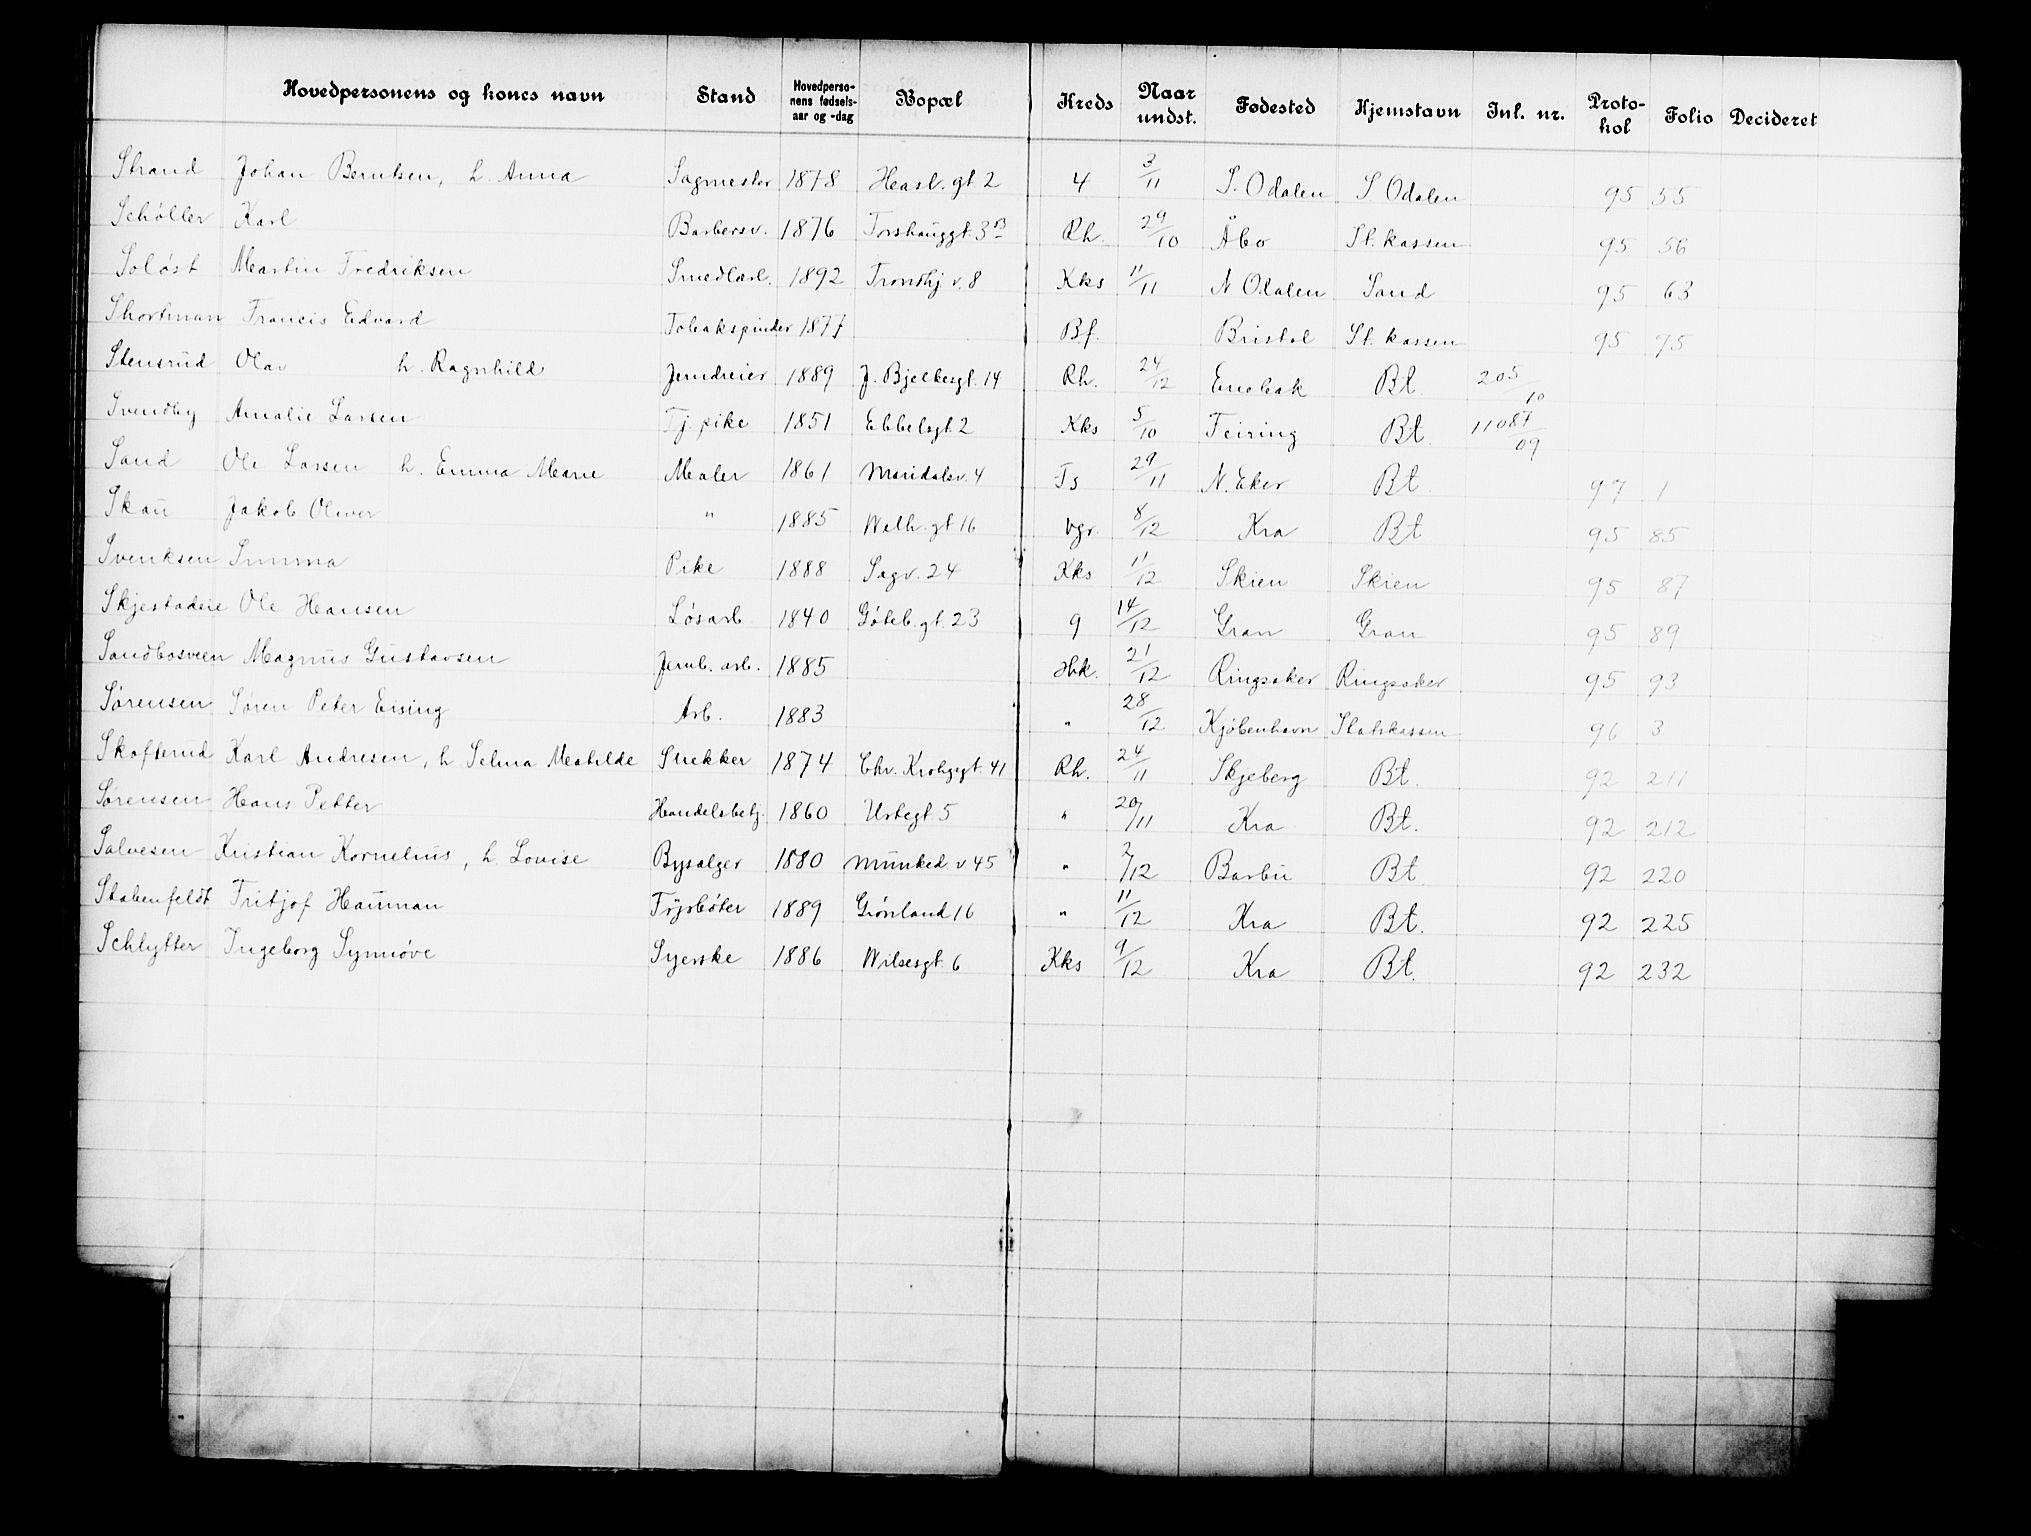 Hovedpersonens og kones navn Stand Hovedpersonens fødselsaar og -dag Bopæl Kreds Naar undst. Fødested Hjemstavn Inl. nr. Protokol Folio Decideret
Strand Johan Berntsen, h. Anna Sagmester 1878 Hasl. gt 2 4 3/11 S. Odalen S Odalen 95 55
Schøller Karl Barbersv. 1876 Torshauggt. 3 B Rh. 29/10 Åbo St. kassen 95 56
Soløst Martin Fredriksen Smedlærl. 1892 Trondhj v. 8 Kks 11/11 N Odalen Sand 95 63
Shortman Francis Edvard Tobakspinder 1877 Bf. Bristol St. kassen 95 75
Stensrud Olav h. Ragnhild Jerndreier 1889 J. Bjelkesgt. 14 Rh. 24/12 Enebak Bt 205/10
Svendby Amalie Larsen Tj. pike 1851 Ebbelsgt. 2 Kks 5/10 Feiring Bt. 11087/09
Sand Ole Larsen h. Emma Marie Maler 1861 Maridalsv. 4 Ts 29/11 N. Eker Bt 97 1
Skau Jakob Oliver " 1885 Welh. gt 16 Vgr. 8/12 Kra Bt 95 85
Svenksen Simma Pike 1888 Sagv. 24 Kks 11/12 Skien Skien 95 87
Skjestadeie Ole Hansen Løsarb 1840 Gøteb. gt. 23 9 14/12 Gran Gran 95 89
Sandbosveen Magnus Gustavsen Jernb. arb. 1885 Hk. 21/12 Ringsaker Ringsaker 95 93
Sørensen Søren Peter Eising Arb. 1883 " 28/12 Kjøbenhavn Statskassen 96 3
Skofterud Karl Andresen, h Selma Mathilde Strekker 1874 Chr. Krohgsgt. 41 Rh. 24/11 Skjeberg Bt. 92 211
Sørensen Hans Petter Handelsbetj. 1860 Urtegt. 5 " 20/11 Kra Bt. 92 212
Salvesen Kristian Kornelius, h. Lovise Bysælger 1880 Munked v 45 " 2/12 Barbu Bt 92 220
Stabenfeldt Fritjof Hauman Fyrbøter 1889 Grønland 16 " 11/12 Kra Bt. 92 225
Schlytter Ingeborg Synnøve Syerske 1886 Wilsesgt. 6 Kks 9/12 Kra Bt. 92 232